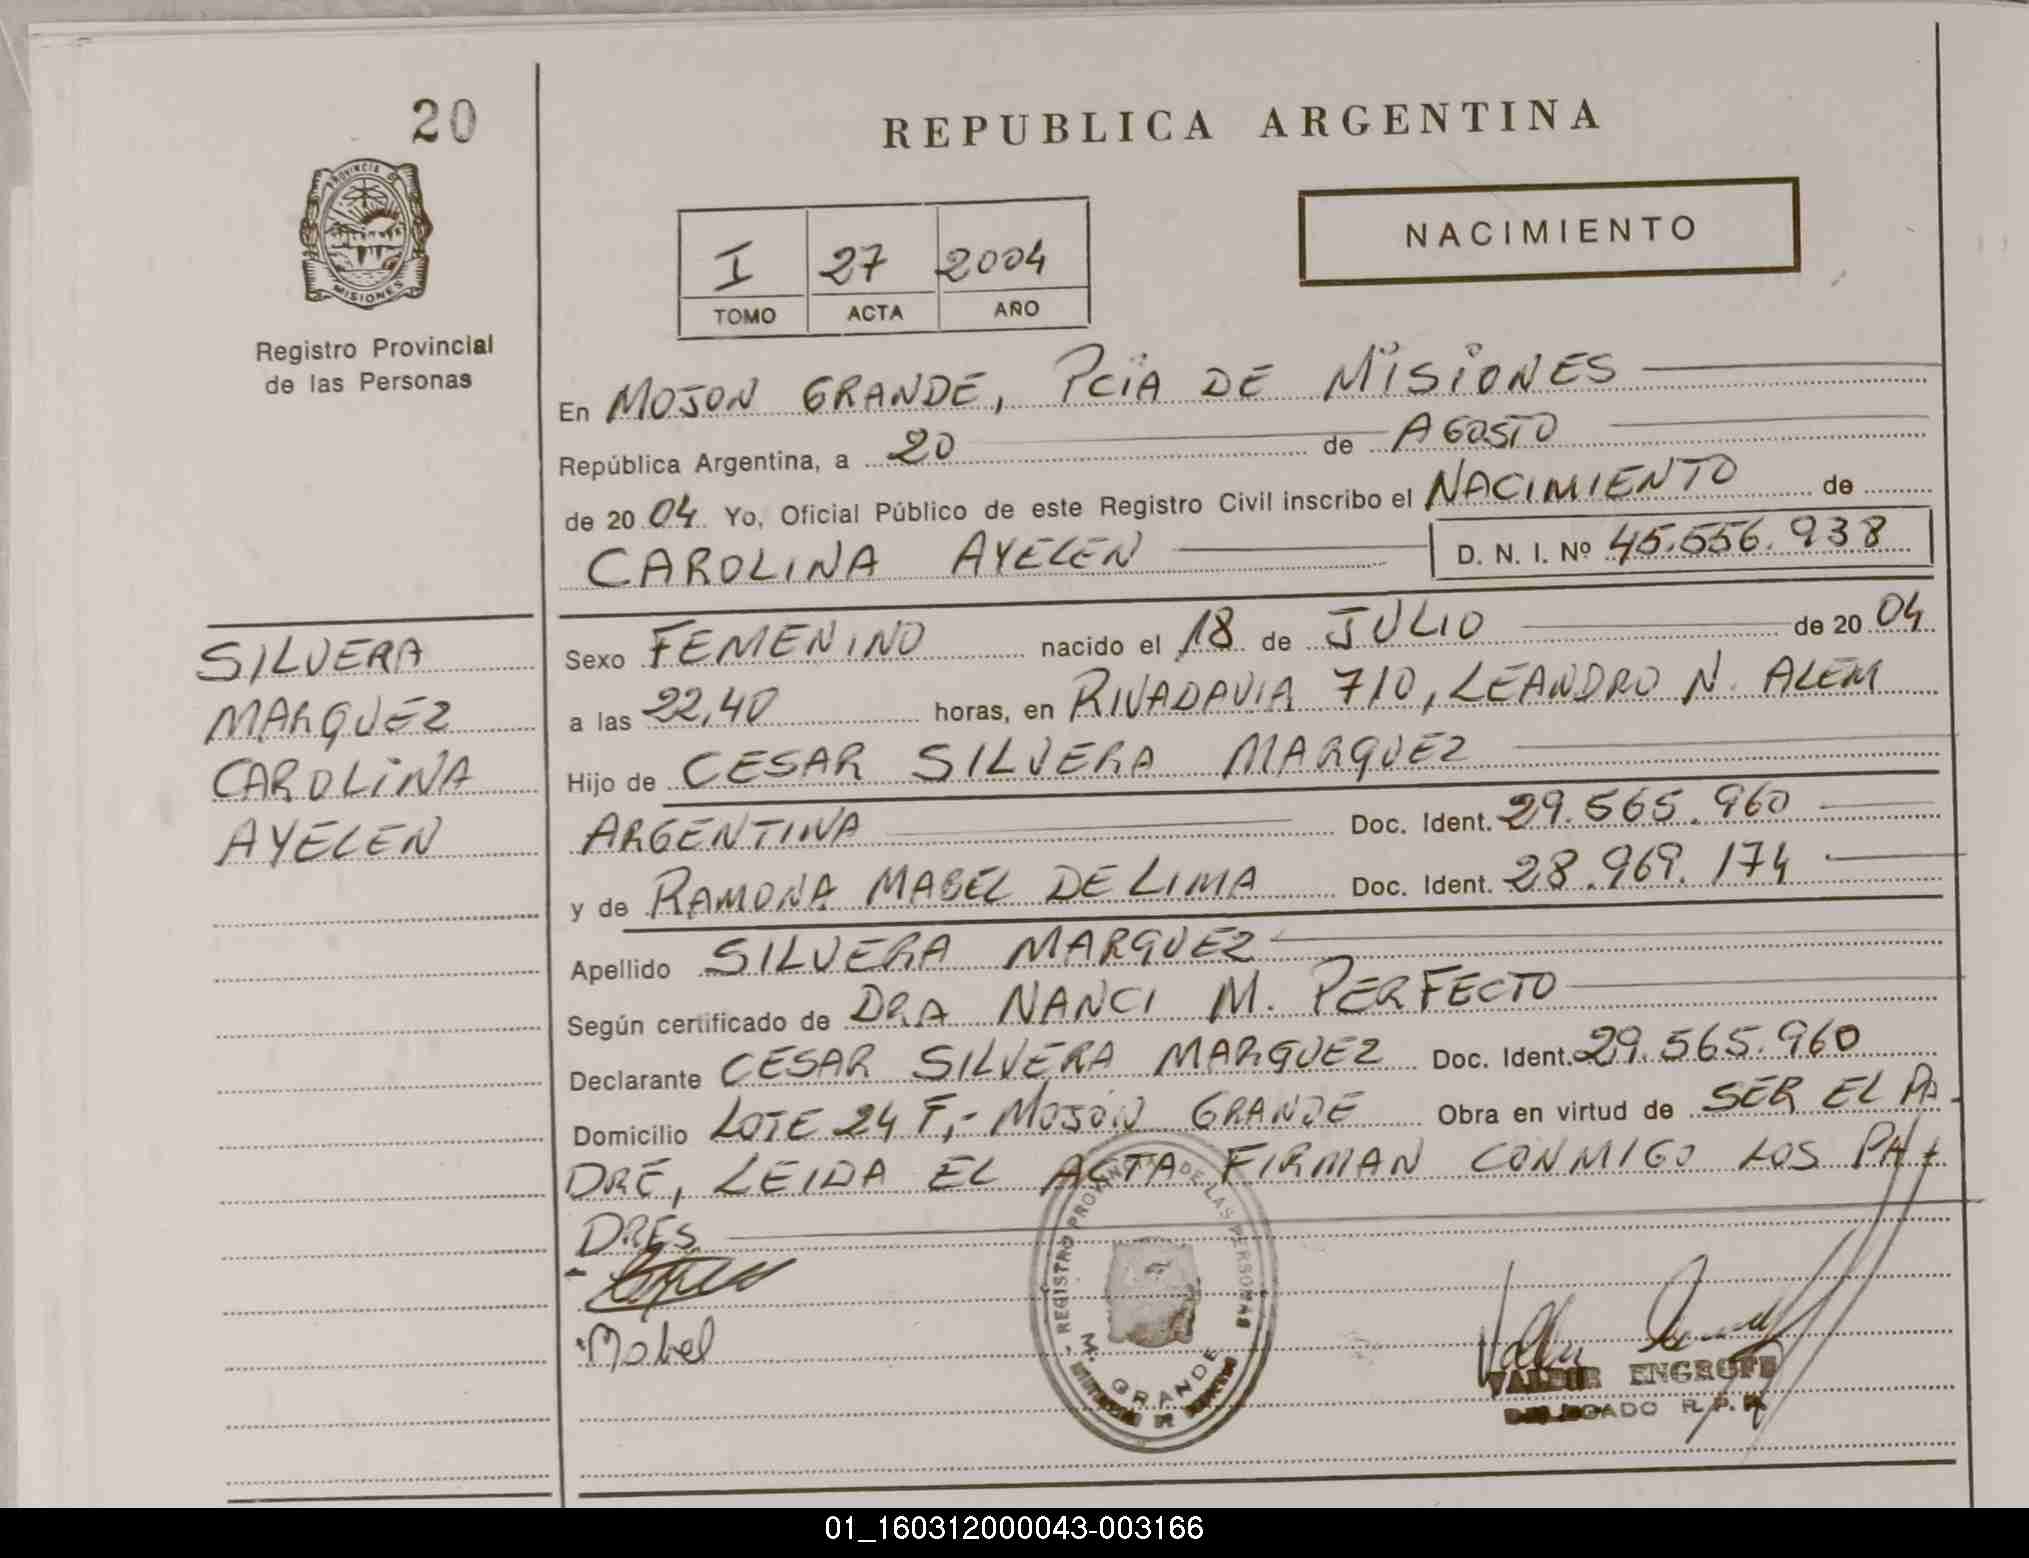 20
REPUBLICA ARGENTINA
PROVINCIA D
MISIONES
Registro Provincial
de las Personas
I 27 2004
TOMO ACTA AÑO
NACIMIENTO
En MOJON GRANDE, PCIA DE MISIONES
República Argentina, a 20 de AGOSTO
de 2004 Yo, Oficial Público de este Registro Civil inscribo el NACIMIENTO de
CAROLINA AYELEN D. N. I. Nº 45.556.938
SILVERA
MARQUEZ
CAROLINA
AYELEN
Sexo FEMENINO nacido el 18 de JULIO de 2004
a las 22,40 horas, en RIVADAVIA 710, LEANDRO N. ALEM
Hijo de CESAR SILVERA MARQUEZ
ARGENTINA Doc. Ident. 29.565.960
y de RAMONA MABEL DE LIMA Doc. Ident. 28.969.174
Apellido SILVERA MARQUEZ
Según certificado de DRA NANCI M. PERFECTO
Declarante CESAR SILVERA MARQUEZ Doc. Ident. 29.565.960
Domicilio LOTE 24 F,- MOJON GRANDE Obra en virtud de SER EL PA-
DRE, LEIDA EL ACTA FIRMAN CONMIGO LOS PA
DRES
Mabel
REGISTRO PROVINCIAL DE LAS PERSONAS
M. GRANDE
ENGROFF
DELEGADO R. P. P.
01_160312000043-003166